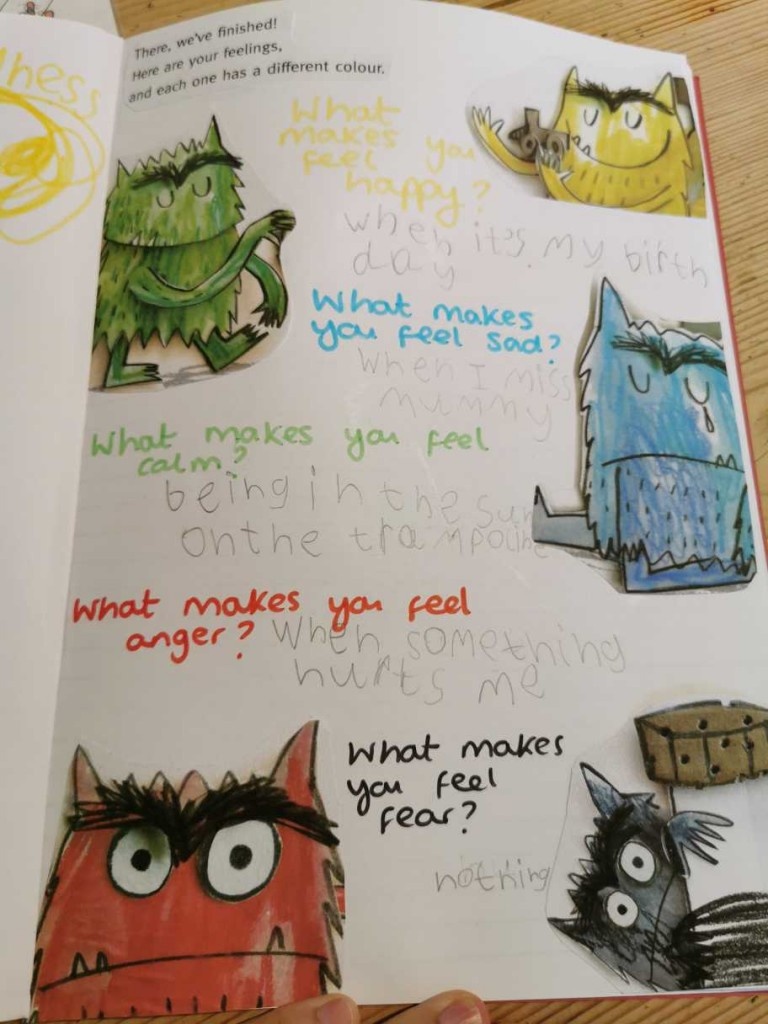 lness
There, we've finished!
Here are your feelings,
and each one has a different colour.
What
makes you
feel
happy?
when it's my birth
day
What makes
you feel sad?
When I miss
mummy
What makes you feel
calm?
being in the sun
on the trampoline
What makes you feel
anger? When something
hurts me
What makes
you feel
fear?
nothing